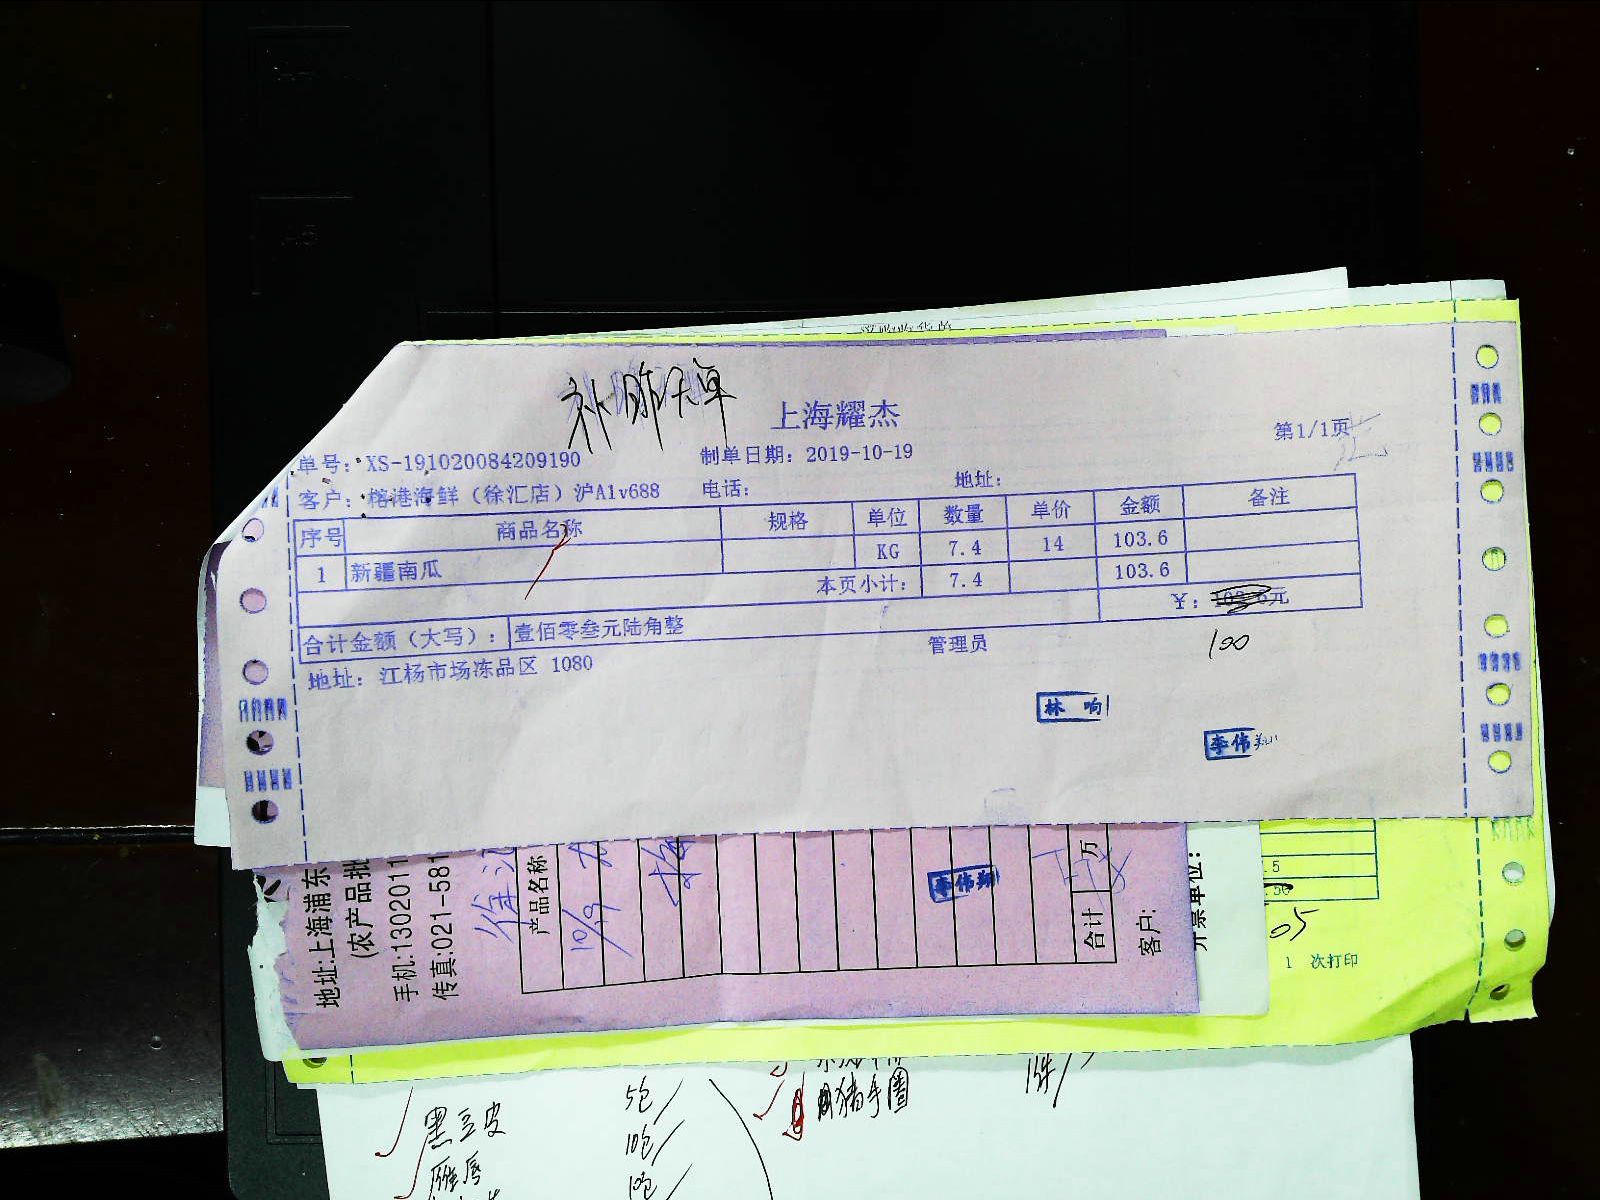 补昨天单
上海耀杰
第1/1页
单号: XS-191020084209190 制单日期: 2019-10-19
客户: 榕港海鲜（徐汇店）沪A1v688 电话: 地址:
序号 商品名称 规格 单位 数量 单价 金额 备注
1 新疆南瓜 KG 7.4 14 103.6
本页小计: 7.4 103.6
合计金额（大写）: 壹佰零叁元陆角整 ¥: 103.6元
100
地址: 江杨市场冻品区 1080 管理员
林 响
李伟
地址:上海浦东
(农产品批
手机:1302011
传真:021-581
徐汇
产品名称
10/19
李伟翔
合计
万
客户:
开票单位:
5
05
1 次打印
黑豆皮 5包
10包
10包
猪手圈
1件